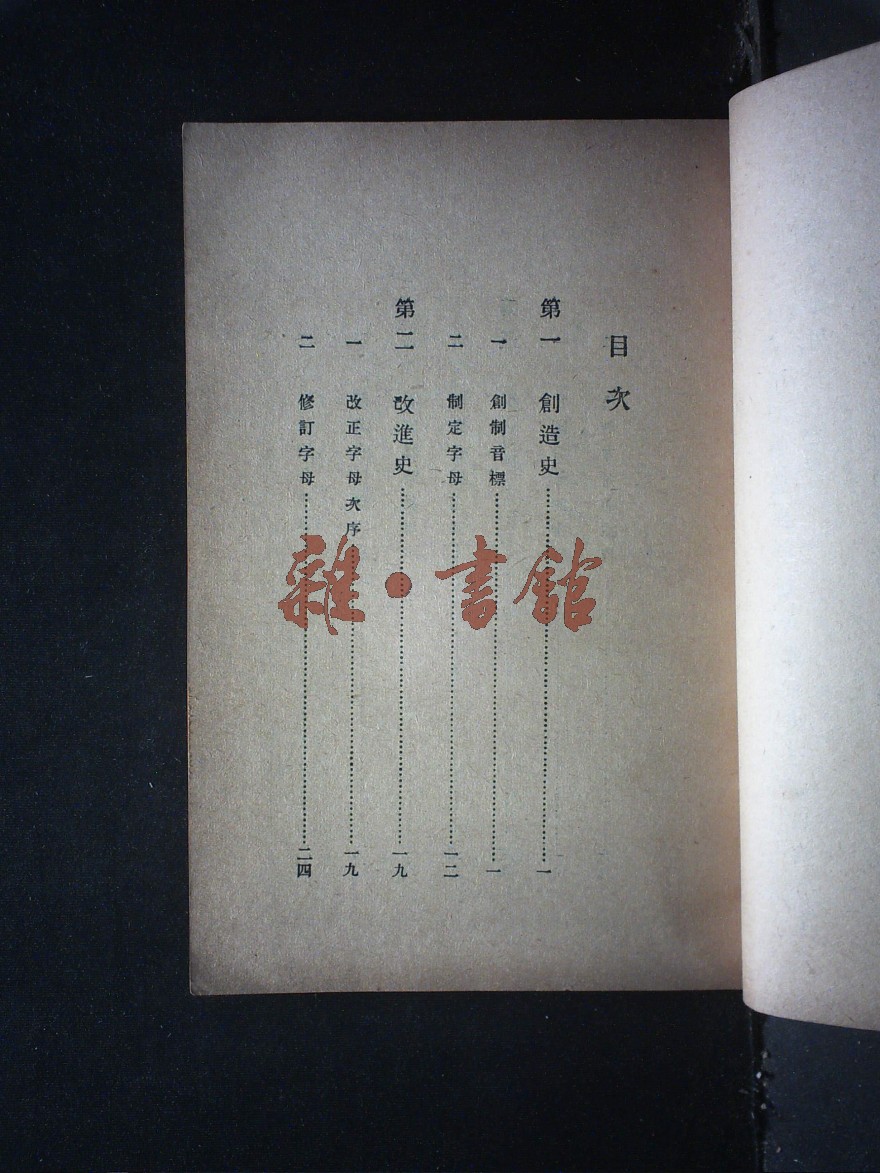 目次
第一 創造史……一
一 創制音標……一
二 制定字母……一二
第二 改進史……一九
一 改正字母次序……一九
二 修訂字母……二四
雜·書館